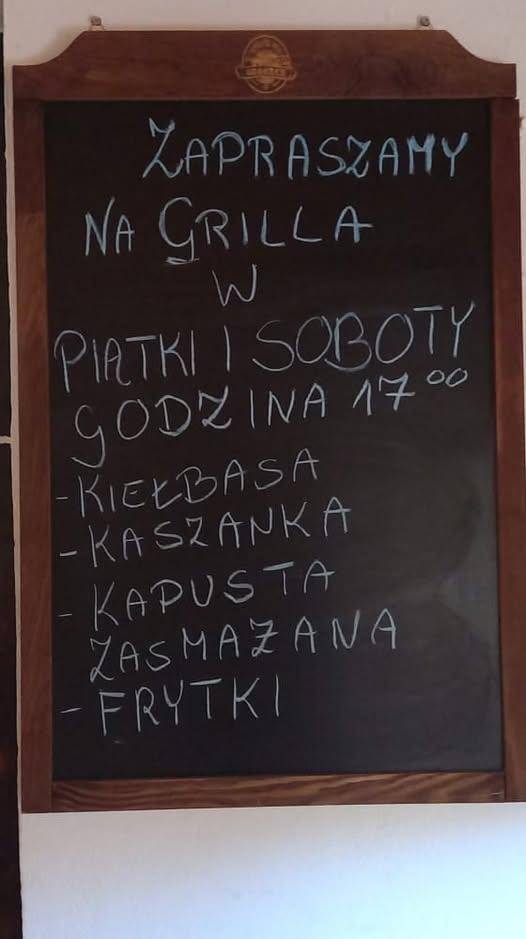 ZAPRASZAMY
NA GRILLA
W
PIĄTKI I SOBOTY
GODZINA 17⁰⁰
- KIEŁBASA
- KASZANKA
- KAPUSTA
ZASMAŻANA
- FRYTKI